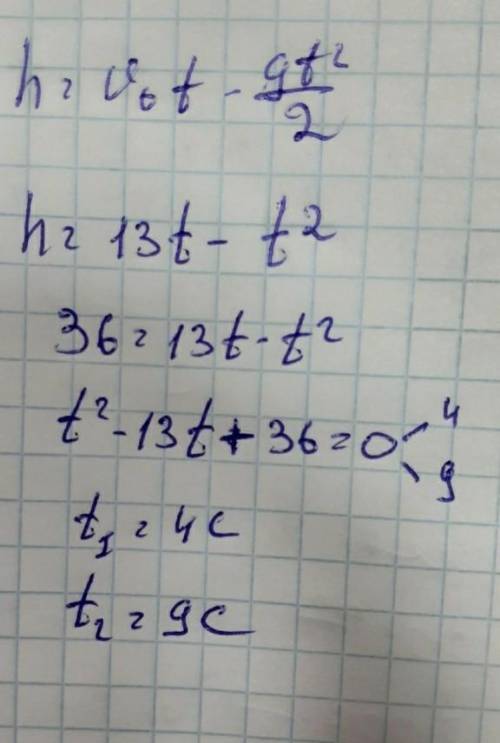 h = v₀t - gt²/2
h = 13t - t²
36 = 13t - t²
t² - 13t + 36 = 0 < 4 9
t₁ = 4с
t₂ = 9с